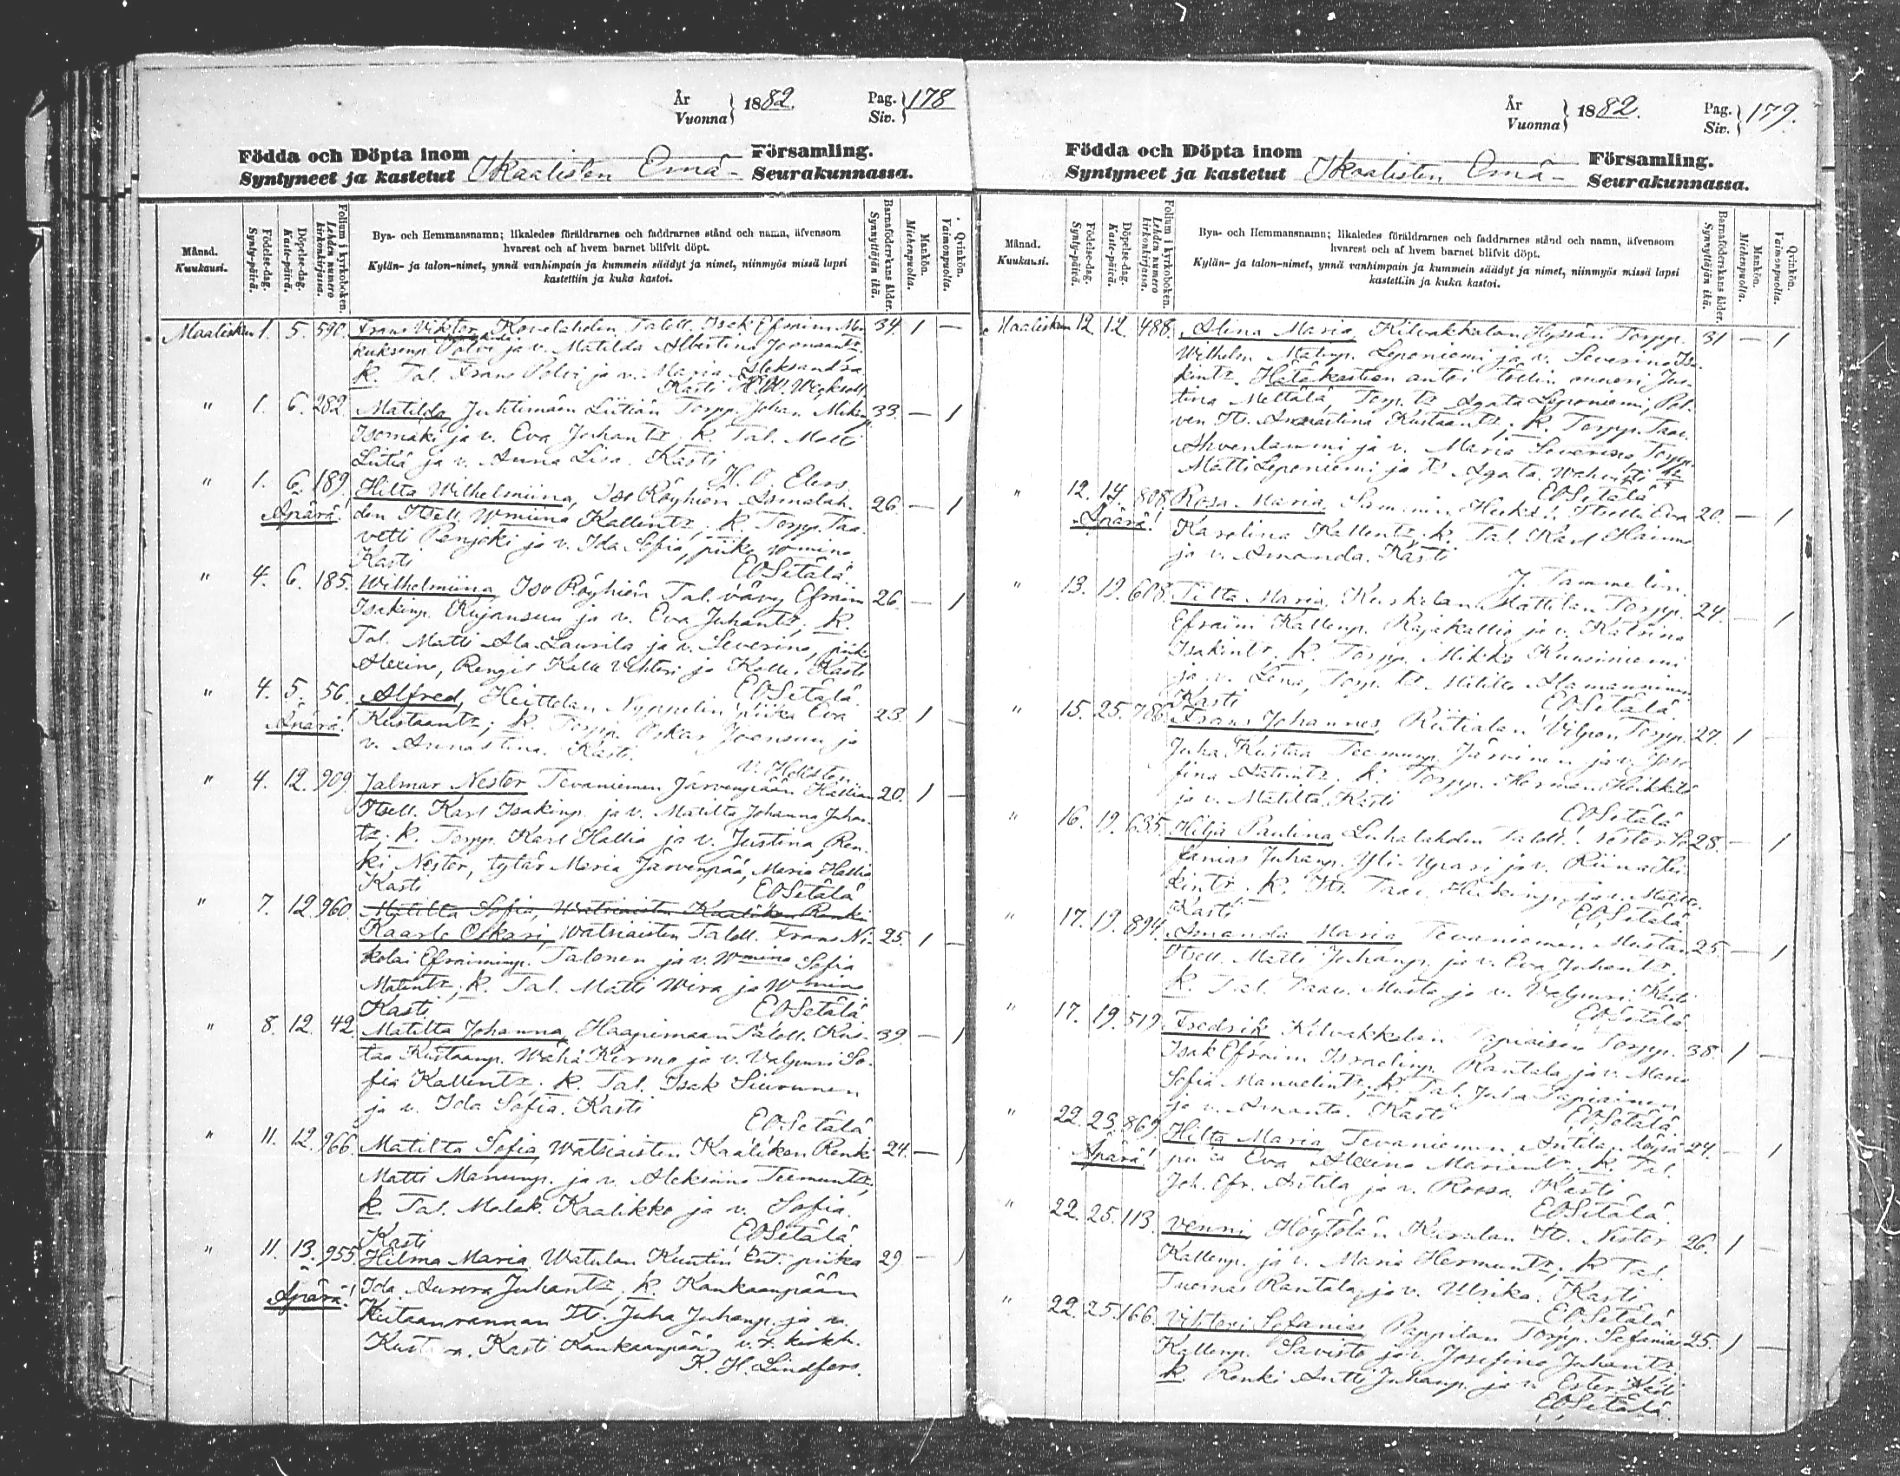 År
Vuonna } 1882.
Pag.
Siv. } 178
Födda och Döpta inom
Syntyneet ja kastetut Ikaalisten Emä-
Församling.
Seurakunnassa.
Månad.
Kuukausi.
Födelse-dag.
Synty-päivä.
Döpelse-dag.
Kaste-päivä.
Folium i kyrkoboken.
Lehden numero
kirkonkirjassa.
Bya- och Hemmansnamn; likaledes föräldrarnes och faddrarnes stånd och namn, äfvensom
hvarest och af hvem barnet blifvit döpt.
Kylän- ja talon-nimet, ynnä vanhimpain ja kummein säädyt ja nimet, niinmyös missä lapsi
kastettiin ja kuka kastoi.
Barnaföderskans ålder.
Synnyttäjän ikä.
Mankön.
Miehenpuolta.
Qvinkön.
Vaimonpuolta.
Maalisken 1. 5. 590. Frans Viktor, Kovelahden Talell. Isak Efraim 34. 1 —
Polvi ja v. Matilda Albertina Joonaantr.
k. Tal. Frans Polvi ja v. Maria Aleksandra
Kasti
" 1. 6. 282. Matilda Juhtimäen Liitiän Torpp. Johan Mikinp. 33. — 1
Isomäki ja v. Eva Juhantr. k. Tal. Matti
Liitiä ja v. Anna Lisa. Kasti
" 1. 6. 189. Hilta Wilhelmiina, Iso Röyhiön 26. — 1
Äpärä! den Itsell. Wmiina Kallentr. k. Torpp. Taa-
vetti Penjoki ja v. Ida Sofia, piika
Kasti EOSetälä.
" 4. 6. 185. Wilhelmiina, Iso Röyhiön Tal. vävy Efraim 26. — 1
Isakinp. Kujansuu ja v. Eva Juhantr. k.
Tal. Matti Ala-Laurila ja v. Severina, piika
Alexina, Rengit Kalle Vihtori ja Kalle. Kasti
EOSetälä.
" 4. 5. 56. Alfred, Heittolan Nyppelin piika Eva 23. 1 —
Äpärä! Kustaantr; k. Torpp. Oskar Joensuu ja
v. Annastina. Kasti
" 4. 12. 909. Jalmar Nestor Tevaniemen Järvenpään Hallian 20. 1 —
Itsell. Karl Isakinp. ja v. Matilta Johanna Juhan-
tr. k. Torpp. Karl Hallia ja v. Justina, Ren-
ki Nestor, tytär Maria Järvenpää, Maria Hallia
Kasti EOSetälä
" 7. 12. 960. Matilta Sofia, Watsiaisten Kaaliken Renki
Kaarle Oskari, Watsiaisten Talell. Frans Ni- 25. 1 —
kolai Efraiminp. Talonen ja v. Wmiina Sofia
Matintr; k. Tal. Matti Wira ja Wmiina
Kasti EOSetälä
" 8. 12. 42. Matilta Johanna, Haapimaan Talell. Kus- 39. — 1
taa Kustaanp. Wähä Kirmo ja v. Valpuri So-
fia Kallentr. k. Tal. Isak Siuruinen
ja v. Ida Sofia. Kasti
EOSetälä
" 11. 12. 966. Matilta Sofia, Watsiaisten Kaaliken Renki 24. — 1
Matti Manunp. ja v. Aleksiina Teemuntr,
k. Tal. Malak. Kaalikko ja v. Sofia.
Kasti EOSetälä
" 11. 13. 955. Hilma Maria, Watulan Kuntin Ent. piika 29 — 1
Äpärä! Ida Aurora Juhantr, k. Kankaanpään
Itr. Juha Juhanp. ja v.
Kustava. Kasti Kankaanpään v.t. kirkh.
K. H. Lindfors.
År
Vuonna } 1882.
Pag.
Siv. } 179.
Födda och Döpta inom
Syntyneet ja kastetut Ikaalisten Emä-
Församling.
Seurakunnassa.
Månad.
Kuukausi.
Födelse-dag.
Synty-päivä.
Döpelse-dag.
Kaste-päivä.
Folium i kyrkoboken.
Lehden numero
kirkonkirjassa.
Bya- och Hemmansnamn; likaledes föräldrarnes och faddrarnes stånd och namn, äfvensom
hvarest och af hvem barnet blifvit döpt.
Kylän- ja talon-nimet, ynnä vanhimpain ja kummein säädyt ja nimet, niinmyös missä lapsi
kastettiin ja kuka kastoi.
Barnaföderskans ålder.
Synnyttäjän ikä.
Mankön.
Miehenpuolta.
Qvinkön.
Vaimonpuolta.
Maalisken 12 12. 488. Alina Maria, Kilvakkalan Hyssän Torpp. 31 — 1
Wilhelm Matinp. Leponiemi ja v. Severina Isa-
kintr. Hätäkasteen antoi
Mettälä, Torp. tr Agata Leponiemi,
Annastina Kustaantr; k. Torpp. Taav.
Ahvenlammi ja v. Maria Severina, Torpp.
Matti Leponiemi ja tr Agata.
EOSetälä
" 12. 14. 808. Rosa Maria, Itsell. Eva 20. — 1
Äpärä! Karolina Kallentr; k. Tal. Karl Hainmo
ja v. Amanda. Kasti
J. Tammelin.
" 13. 19. 608. Tilta Maria, Kurkelan Mattilan Torpp. 24. — 1
Efraim Kallenp. Rajakallio ja v. Katrina
Isakintr. k. Torpp. Mikko Kuusiniemi
ja v. Lena, Torp. tr Matilta
Kasti EOSetälä.
" 15. 25. 786. Frans Johannes, Riitialan Vilpon Torpp. 27. 1 —
Juha Kustaa Teemunp. Järvinen ja v. Jose-
fina k. Torpp. Herman Heikkilä
ja v. Matilta. Kasti
EOSetälä.
" 16. 19. 635. Hilja Paulina, Luhalahden Talell. Nestor Se- 28. — 1
fanias Juhanp. Yli- ja v. Riina
k. Itr. Taav. ja v. Matilta.
Kasti EOSetälä.
" 17. 19. 894. Amanda Maria Tevaniemen Mustan 25. — 1
Itsell. Matti Juhanp. ja v. Eva Juhantr.
k. Tal. Taav. Musta ja v. Valpuri. Kasti
EOSetälä.
" 17. 19. 519. Fredrik Kilvakkalan Papiaisen Torpp. 38. 1 —
Isak Efraim Israelinp. Rantala ja v. Maria
Sofia Manuelintr, k. Tal. Juha Papiainen
ja v. Amanta. Kasti EOSetälä.
" 22. 25. 869. Hilta Maria, Tevaniemen Antila 24. — 1
Äpärä! Eva Alexina k. Tal.
Joh. Efr. Antila ja v. Roosa. Kasti
EOSetälä.
" 22. 25. 113. Venni, Höytölän Kuralan Itr. Nestor 26. 1 —
Kallenp. ja v. Maria Hermuntr, k. Tal.
Tuomas Rantala ja v. Ulrika. Kasti
EOSetälä.
" 22. 25. 166. Vihtori Sefanias Pappilan Torpp. Sefanias 25. 1 —
Kallenp. Savisto ja v. Josefina Juhantr
k. Renki Antti Juhanp. ja v. Ester. Kasti
EOSetälä.